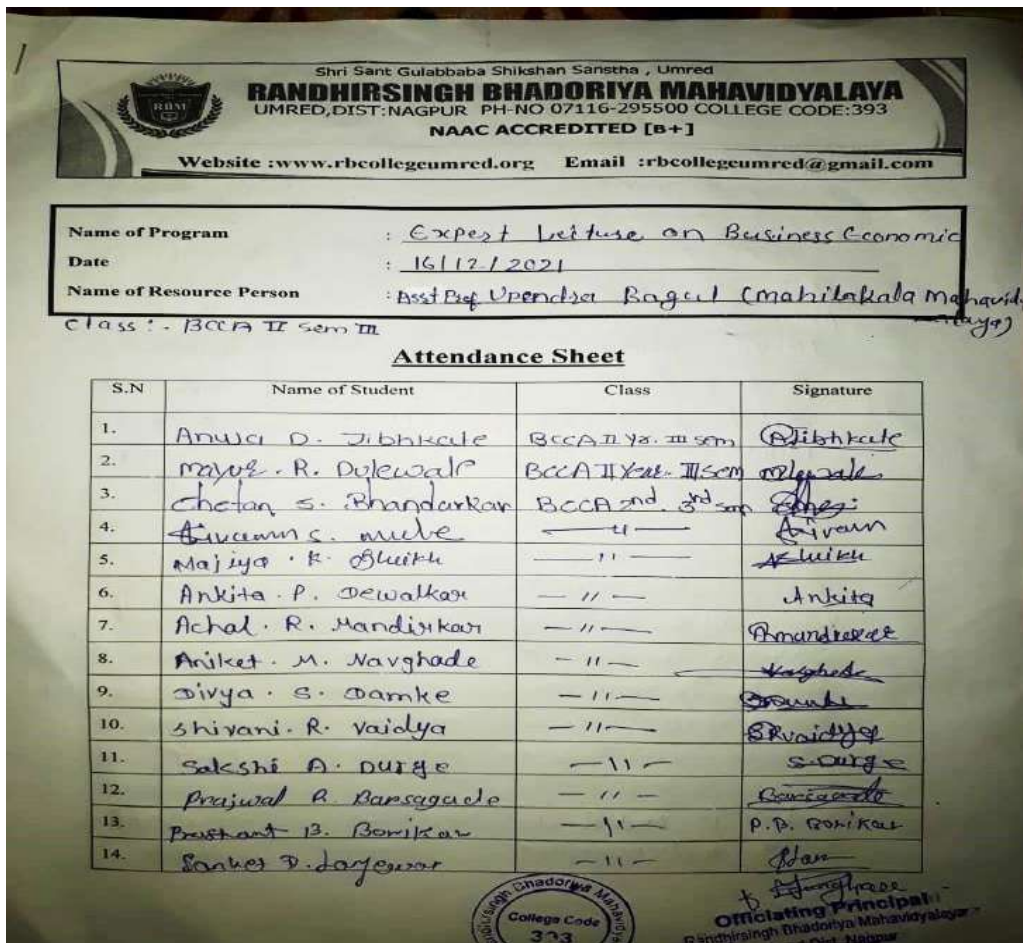 Shri Sant Gulabbaba Shikshan Sanstha , Umred
RBM
RANDHIRSINGH BHADORIYA MAHAVIDYALAYA
UMRED,DIST:NAGPUR PH-NO 07116-295500 COLLEGE CODE:393
NAAC ACCREDITED [B+]
Website :www.rbcollegeumred.org Email :rbcollegeumred@gmail.com
Name of Program : Expert Leiture on Business Economic
Date : 16/12/2021
Name of Resource Person : Asst Prof Upendra Bagul (mahilakala Mahavid-
Class :- BCCA II Sem III -laya)
Attendance Sheet
S.N Name of Student Class Signature
1. Anuja D. Jibhkate BCCA II Yr. III sem AJibhkate
2. Mayur. R. Dulewale BCCA II Year. III sem
3. Chetan S. Bhandarkar BCCA 2nd 3rd sem
4. S. — 11 —
5. Majiya . K. Sheikh — 11 — Sheikh
6. Ankita . P. Dewalkar — 11 — Ankita
7. Achal . R. Mandirkar — 11 —
8. Aniket . M. Navghade — 11 —
9. Divya . S. Damke — 11 —
10. Shivani . R. Vaidya — 11 — SRvaidya
11. Sakshi A. Durge — 11 — S.Durge
12. Prajwal R. Barsagade — 11 —
13. Prashant B. Borikar — 11 — P.B. Borikar
14. Sanket D. — 11 —
College Code
Officiating Principal
Randhirsingh Bhadoriya Mahavidyalaya
Dist. Nagpur